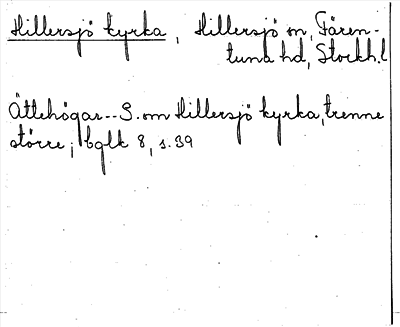 Hillersjö kyrka, Hillersjö sn, Fären-
tuna hd, Stockh.l
Ättehögar--S. om Hillersjö kyrka, trenne
större; bglk 8, s. 39